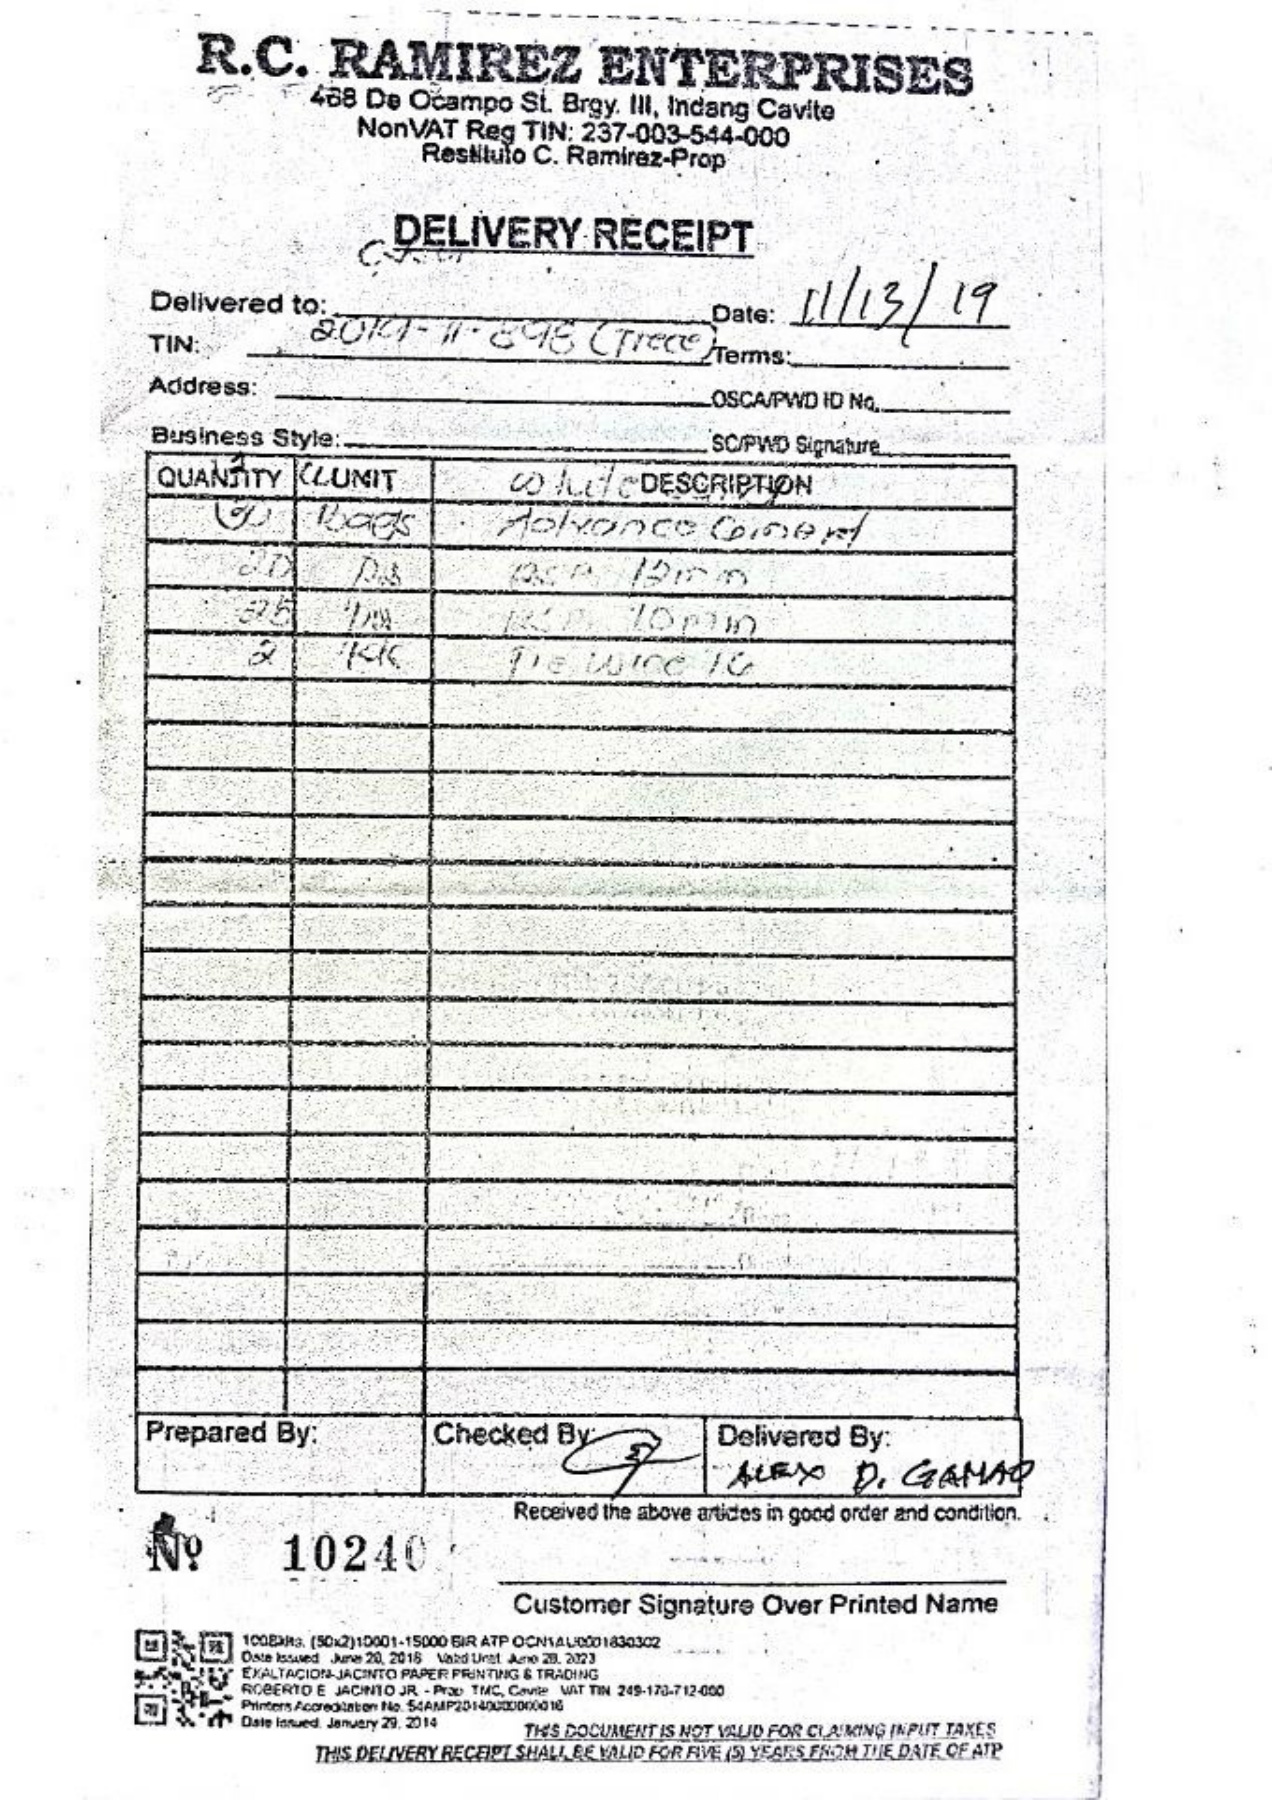 R.C. RAMIREZ ENTERPRISES
468 De Ocampo St. Brgy. III, Indang Cavite
NonVAT Reg TIN: 237-003-544-000
Restituto C. Ramirez-Prop
DELIVERY RECEIPT
Delivered to: Date: 11/13/19
TIN: 2019-11-898 (Trece) Terms:
Address: OSCA/PWD ID No.
Business Style: SC/PWD Signature
QUANTITY UNIT DESCRIPTION
Bags Advance Cement
20 12mm
25 10mm
2 Tie wire 16
Prepared By: Checked By: Delivered By:
ALEX D. GAMAO
Received the above articles in good order and condition.
Nº 10240
Customer Signature Over Printed Name
100Bkts. (50x2)10001-15000 BIR ATP
Date Issued June 20, 2018 Valid Until
EXALTACION-JACINTO PAPER PRINTING & TRADING
ROBERTO E. JACINTO JR. - Prop TMC, Cavite VAT TIN 249-170-712-000
Printers Accreditation No.
Date Issued. January 29, 2014
THIS DOCUMENT IS NOT VALID FOR CLAIMING INPUT TAXES
THIS DELIVERY RECEIPT SHALL BE VALID FOR FIVE (5) YEARS FROM THE DATE OF ATP